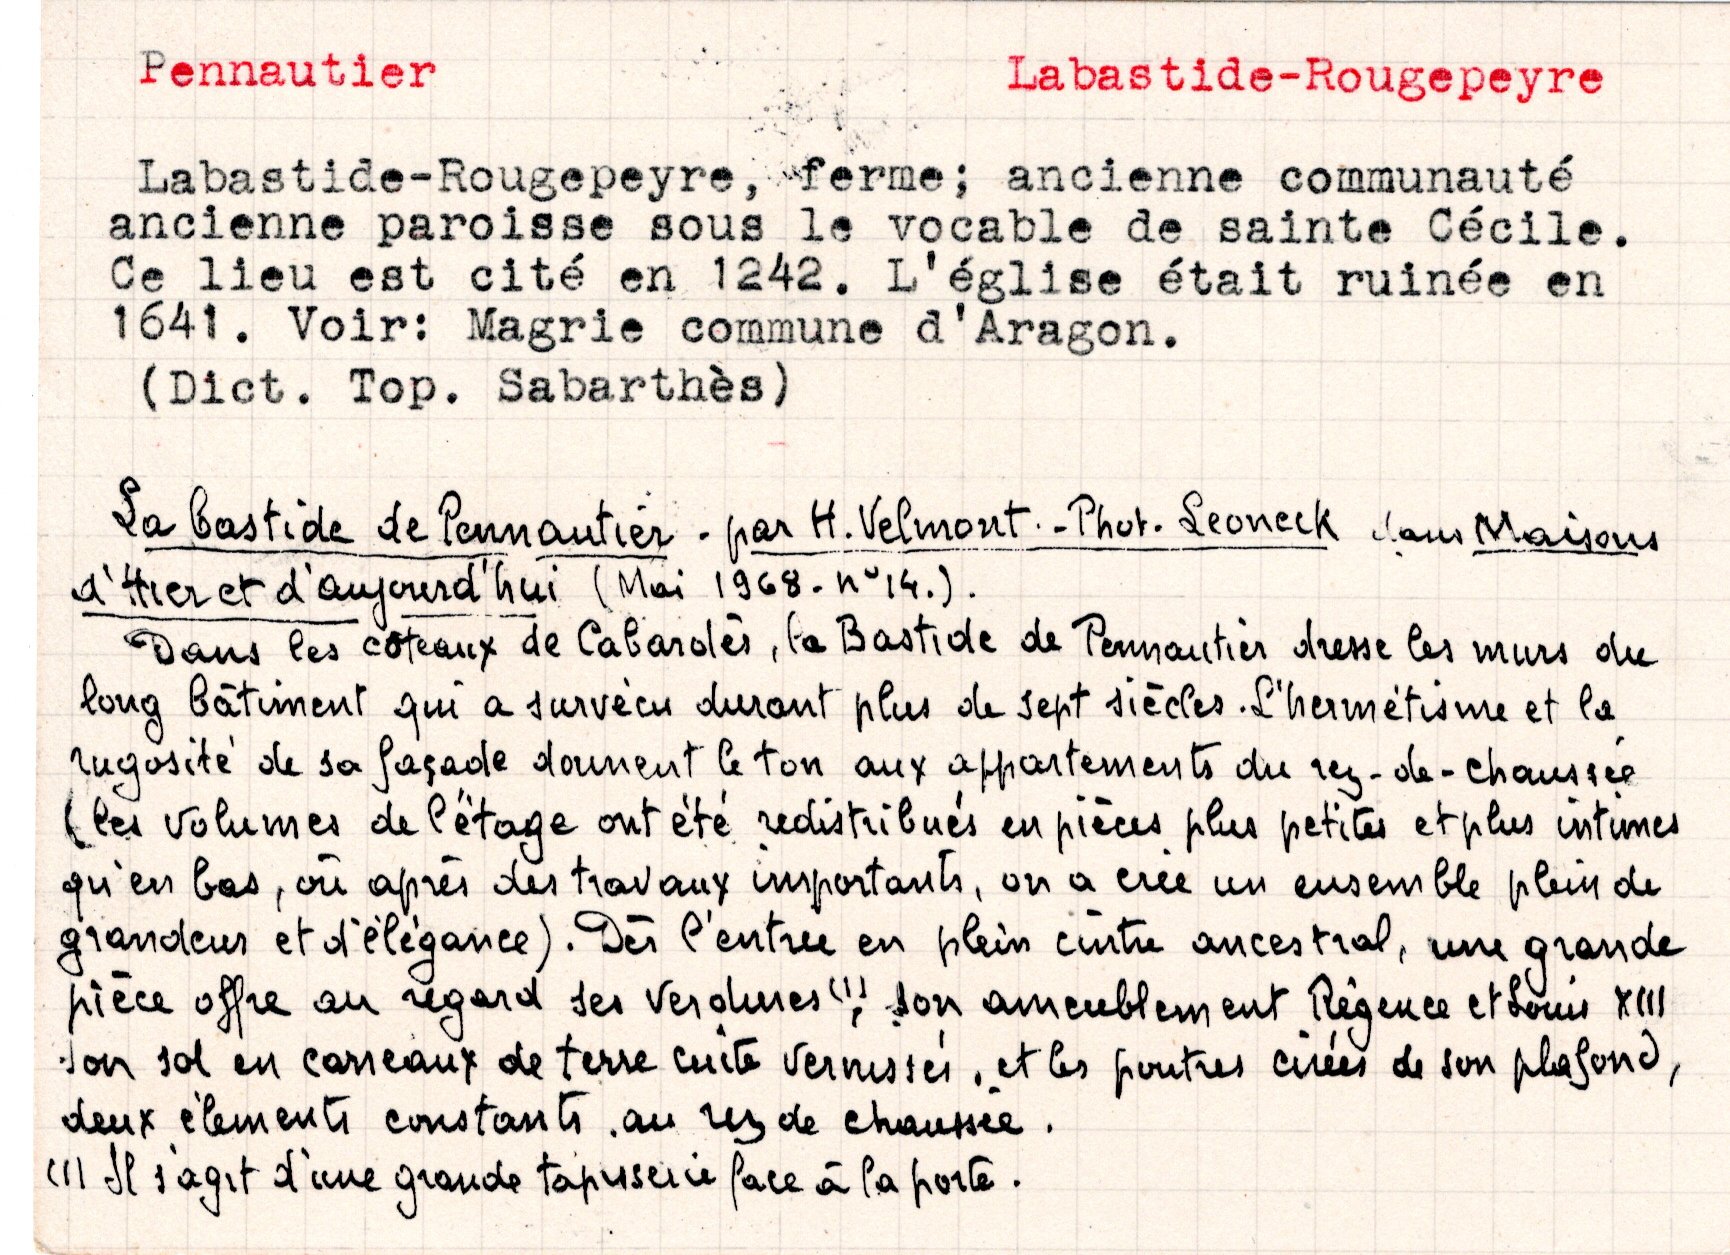 Pennautier Labastide-Rougepeyre
Labastide-Rougepeyre, ferme; ancienne communauté
ancienne paroisse sous le vocable de sainte Cécile.
Ce lieu est cité en 1242. L'église était ruinée en
1641. Voir: Magrie commune d'Aragon.
(Dict. Top. Sabarthès)
La bastide de Pennautier - par H. Velmont - Phot. Leoneck dans Maisons
d'Hier et d'aujourd'hui (Mai 1968 - n° 14.).
Dans les coteaux de Cabardès, la Bastide de Pennautier dresse les murs du
long bâtiment qui a survécu durant plus de sept siècles. L'hermétisme et la
rugosité de sa façade donnent le ton aux appartements du rez-de-chaussée
(les volumes de l'étage ont été redistribués en pièces plus petites et plus intimes
qu'en bas, où après des travaux importants, on a créé un ensemble plein de
grandeur et d'élégance). Dès l'entrée en plein cintre ancestral, une grande
pièce offre au regard ses verdures (1), son ameublement Régence et Louis XIII
son sol en carreaux de terre cuite vernissés, et les poutres cirées de son plafond,
deux éléments constants au rez de chaussée.
(1) Il s'agit d'une grande tapisserie face à la porte.